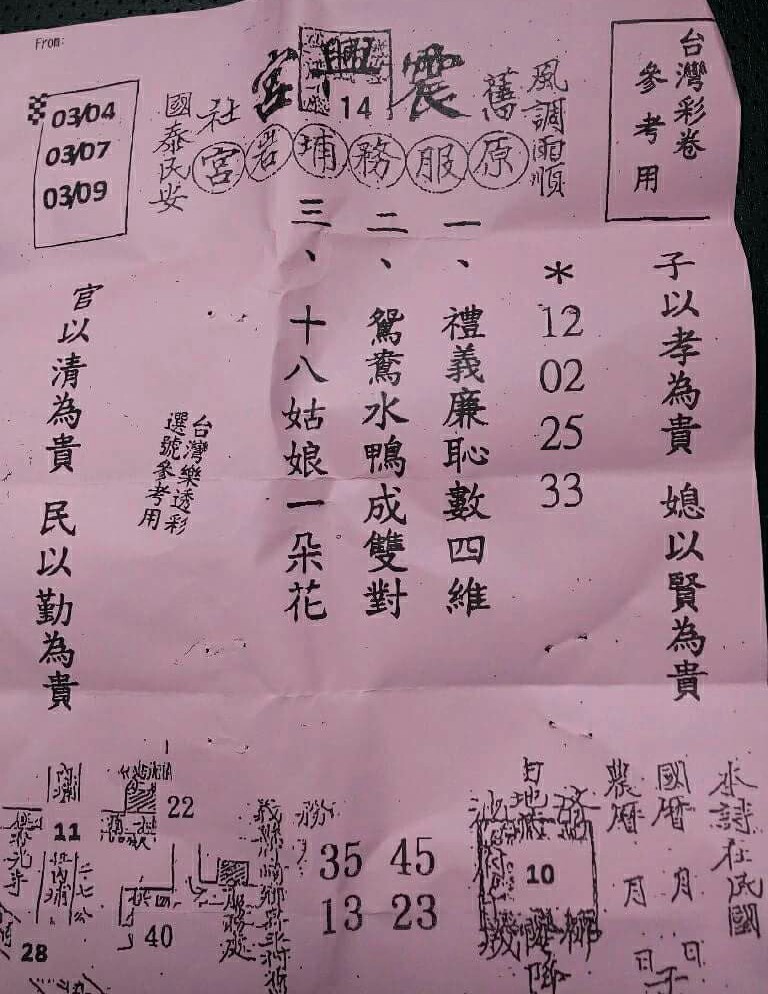 From:
台灣彩卷
參考用
風調雨順
舊
震興宮
14
社
國泰民安
原服務埔岩宮
03/04
03/07
03/09
子以孝為貴 媳以賢為貴
*
12
02
25
33
一、禮義廉恥數四維
二、鴛鴦水鴨成雙對
三、十八姑娘一朵花
台灣樂透彩
選號參考用
官以清為貴 民以勤為貴
本詩在民國
國曆 月 日
農曆 月 日子
10
35 45
13 23
務
服務處
22
11
40
28